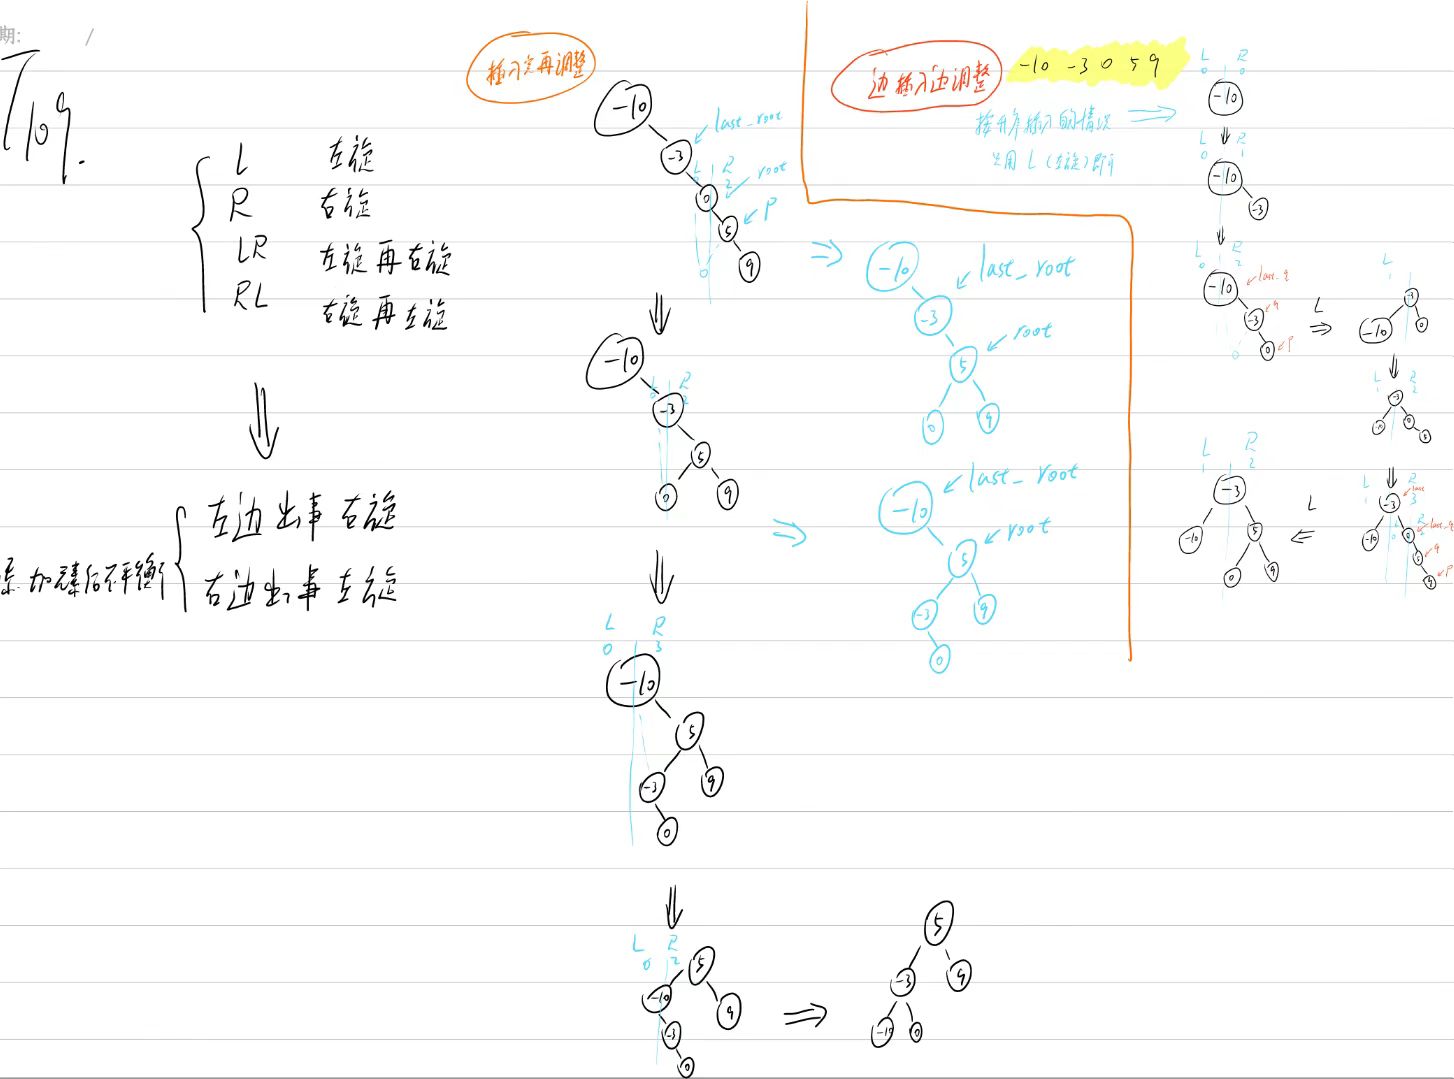 期: /
T109.
L 左旋
R 右旋
LR 左旋再右旋
RL 右旋再左旋
加素后不平衡
左边出事右旋
右边出事左旋
插入完再调整
-10
-3
last_root
L R
2
0
root
5
P
9
0
-10
L R
0 2
-3
5
0
9
L R
0 3
-10
5
-3
9
0
L R
0 2
5
-10
9
-3
0
5
-3
9
-10
0
-10
last_root
-3
root
5
0
9
-10
last_root
root
5
-3
9
0
边插入边调整
-10 -3 0 5 9
按升序插入的情况
只用 L (左旋) 即可
L R
0 0
-10
L R
0 1
-10
-3
L R
0 2
-10
last_q
-3
q
0
P
0
L
L
1
-3
-10
0
L R
1 2
-3
-10
0
5
L R
1 3
-3
last
-10
0
last_q
5
q
9
P
L
L R
1 2
-3
-10
5
0
9